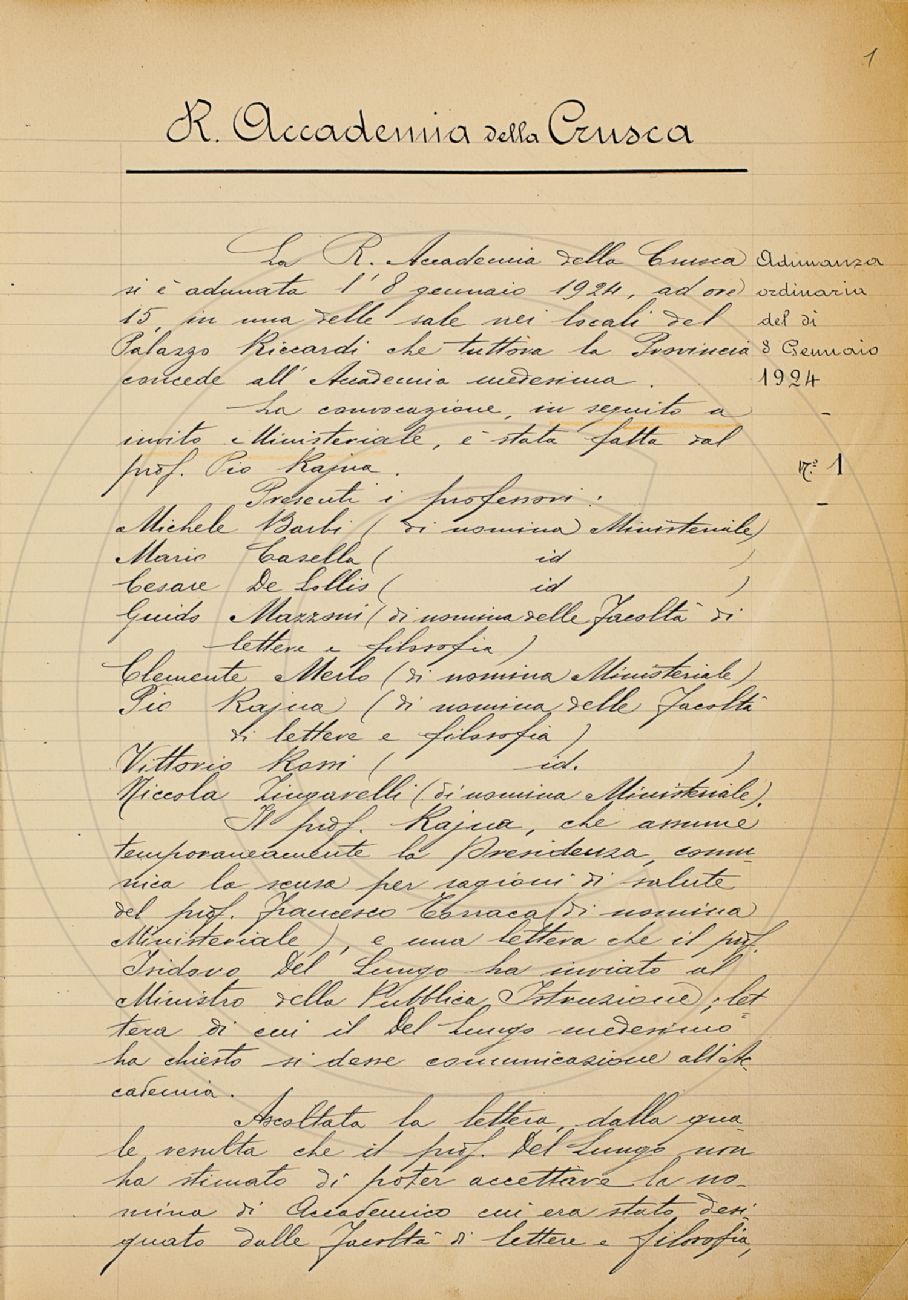 1
R. Accademia della Crusca
La R. Accademia della Crusca
si è adunata l'8 gennaio 1924, ad ore
15, in una delle sale nei locali del
Palazzo Riccardi che tuttora la Provincia
concede all'Accademia medesima.
Adunanza
ordinaria
del dì
8 Gennaio
1924
-
N.º 1
-
La convocazione, in seguito a
invito Ministeriale, è stata fatta dal
prof. Pio Rajna.
Presenti i professori:
Michele Barbi (di nomina Ministeriale)
Mario Casella ( id )
Cesare De Lollis ( id )
Guido Mazzoni (di nomina delle Facoltà di
lettere e filosofia)
Clemente Merlo (di nomina Ministeriale)
Pio Rajna (di nomina delle Facoltà
di lettere e filosofia)
Vittorio Rossi ( id. )
Niccola Zingarelli (di nomina Ministeriale).
Il prof. Rajna, che assume
temporaneamente la Presidenza, comu-
nica la scusa per ragioni di salute
del prof. Francesco Torraca (di nomina
Ministeriale), e una lettera che il prof.
Isidoro Del Lungo ha inviato al
Ministro della Pubblica Istruzione; let
tera di cui il Del Lungo medesimo
ha chiesto si desse comunicazione all'Ac
cademia.
Ascoltata la lettera, dalla qua
le resulta che il prof. Del Lungo non
ha stimato di poter accettare la no-
mina di Accademico cui era stato desi
gnato dalle Facoltà di lettere e filosofia,